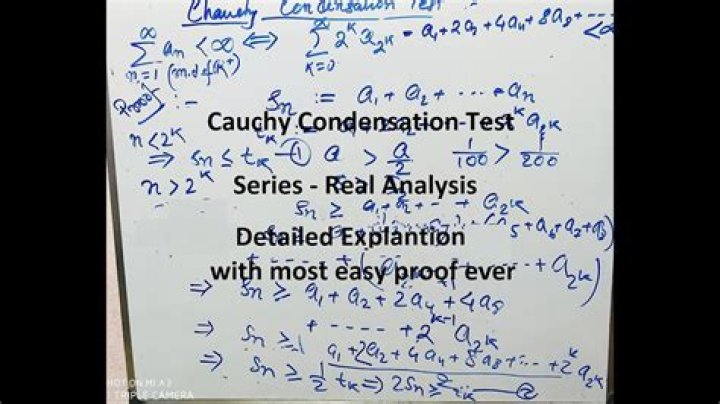 Chauchy Condensation Test
∞ ∑ n=1 an < ∞ ⇔ ∞ ∑ k=0 2^k a_2^k = a1 + 2a2 + 4a4 + 8a8 + ---- < ∞
(m.d. of R+)
Proof :-
Sn := a1 + a2 + ---- + an
n < 2^k
⇒ Sn ≤ tk —① a > a/2 1/100 > 1/200
n > 2^k
Sn ≥ a1 + a2 + -- + a_2^k
+ a6 + a7 + a8)
---- + a_2^k)
⇒ Sn ≥ a1 + a2 + 2a4 + 4a8
+ ---- + 2^k-1 a_2^k
⇒ Sn ≥
a1 + 2a2 + 4a4 + 8a8 + -- + 2^k a_2^k
⇒ Sn ≥ 1/2 tk ⇒ 2Sn ≥ tk —②
Cauchy Condensation Test
Series - Real Analysis
Detailed Explantion
with most easy proof ever
SHOT ON MI A3
TRIPLE CAMERA